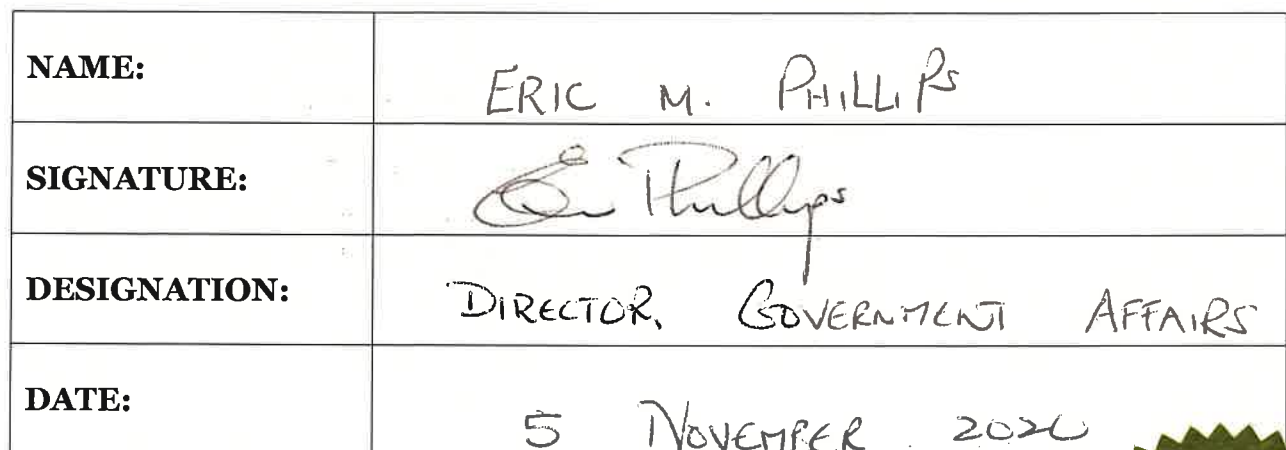 NAME: ERIC M. PHILLIPS
SIGNATURE: Eric Phillips
DESIGNATION: DIRECTOR, GOVERNMENT AFFAIRS
DATE: 5 NOVEMBER 2020